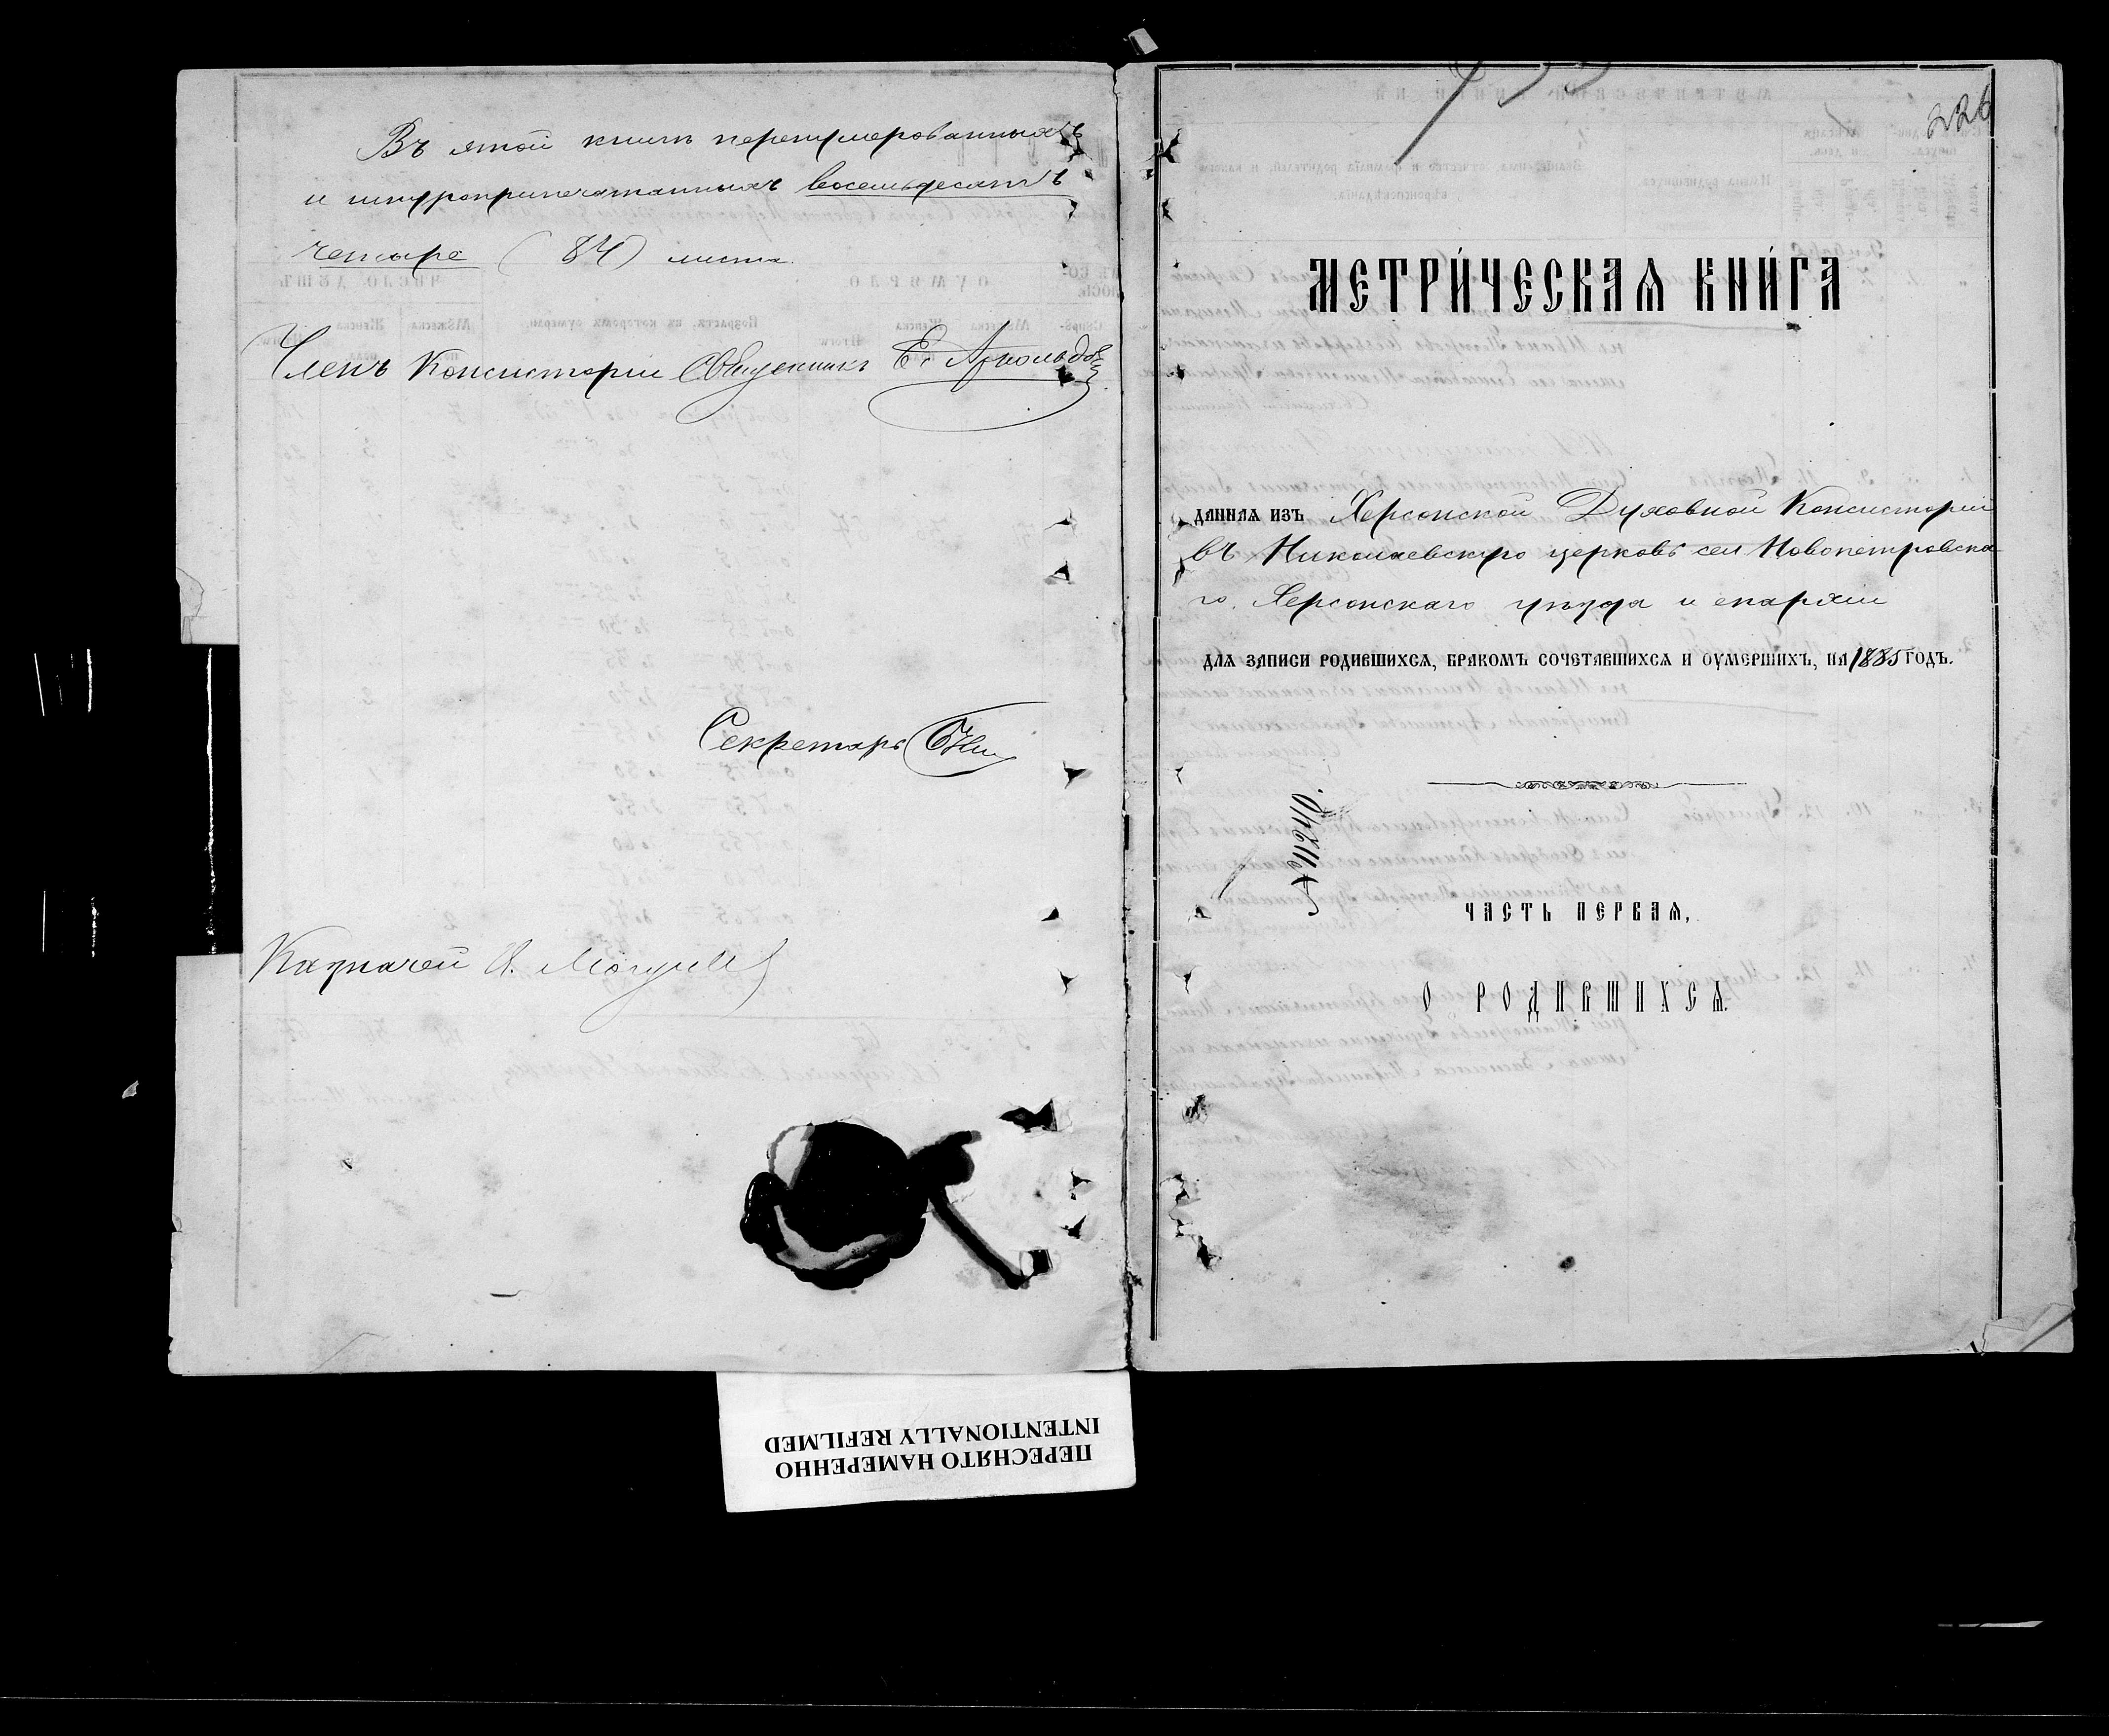 Въ этой книгѣ перенумерованныхъ
и шнуроприпечатанныхъ восемьдесятъ
четыре (84) листа.
Членъ Консисторіи Священникъ Е. Арнольдовъ
Секретарь
Казначей
226
МЕТРИ́ЧЕСКАѦ КНИ́ГА
ДАННАѦ ИЗЪ Херсонской Духовной Консисторіи
въ Николаевскую церковь села Новопетровска-
го, Херсонскаго уѣзда и епархіи
ДЛѦ ЗАПИСИ РОДИВШИХСѦ, БРАКОМЪ СОЧЕТАВШИХСѦ И ОУМЕРШИХЪ, НА 1885 ГОДЪ.
№ 11240.
ЧАСТЬ ПЕРВАѦ,
О РОДИВШИХСѦ.
ПЕРЕСНЯТО НАМЕРЕННО
INTENTIONALLY REFILMED